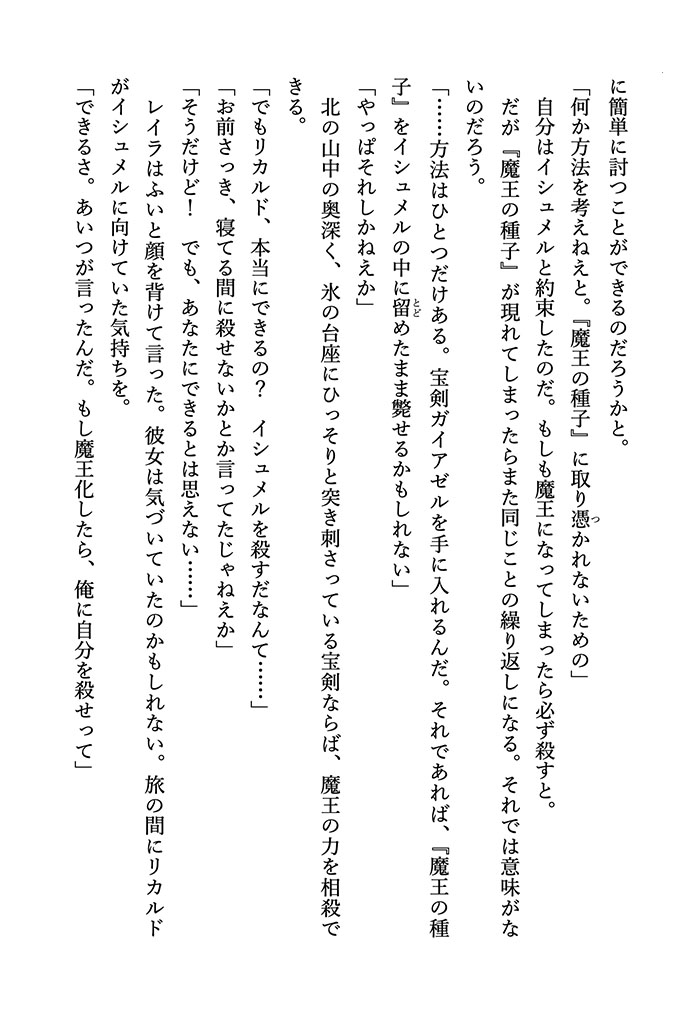 に簡単に討つことができるのだろうかと。
「何か方法を考えねえと。『魔王の種子』に取り憑かれないための」
自分はイシュメルと約束したのだ。もしも魔王になってしまったら必ず殺すと。
だが『魔王の種子』が現れてしまったらまた同じことの繰り返しになる。それでは意味がな
いのだろう。
「……方法はひとつだけある。宝剣ガイアゼルを手に入れるんだ。それであれば、『魔王の種
子』をイシュメルの中に留めたまま斃せるかもしれない」
「やっぱそれしかねえか」
北の山中の奥深く、氷の台座にひっそりと突き刺さっている宝剣ならば、魔王の力を相殺で
きる。
「でもリカルド、本当にできるの？　イシュメルを殺すだなんて……」
「お前さっき、寝てる間に殺せないかとか言ってたじゃねえか」
「そうだけど！　でも、あなたにできるとは思えない……」
レイラはふいと顔を背けて言った。彼女は気づいていたのかもしれない。旅の間にリカルド
がイシュメルに向けていた気持ちを。
「できるさ。あいつが言ったんだ。もし魔王化したら、俺に自分を殺せって」